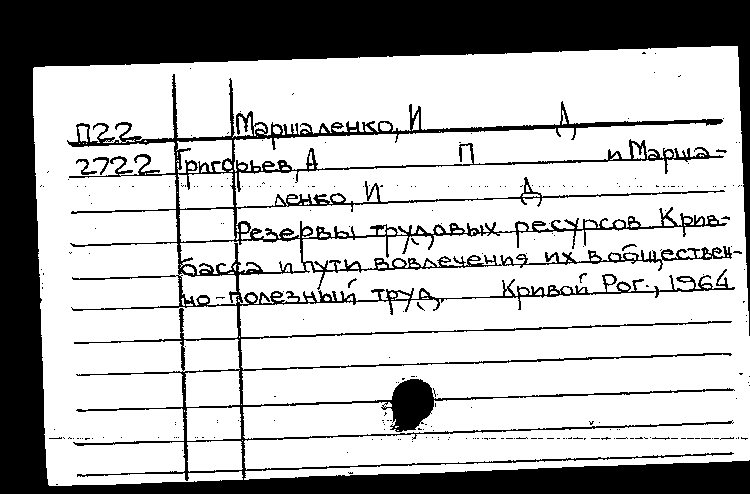 П22 Маршаленко, И Д
2722 Григорьев, А П и Марша-
ленко, И Д
Резервы трудовых ресурсов Крив-
басса и пути вовлечения их в обществен-
но-полезный труд. Кривой Рог., 1964